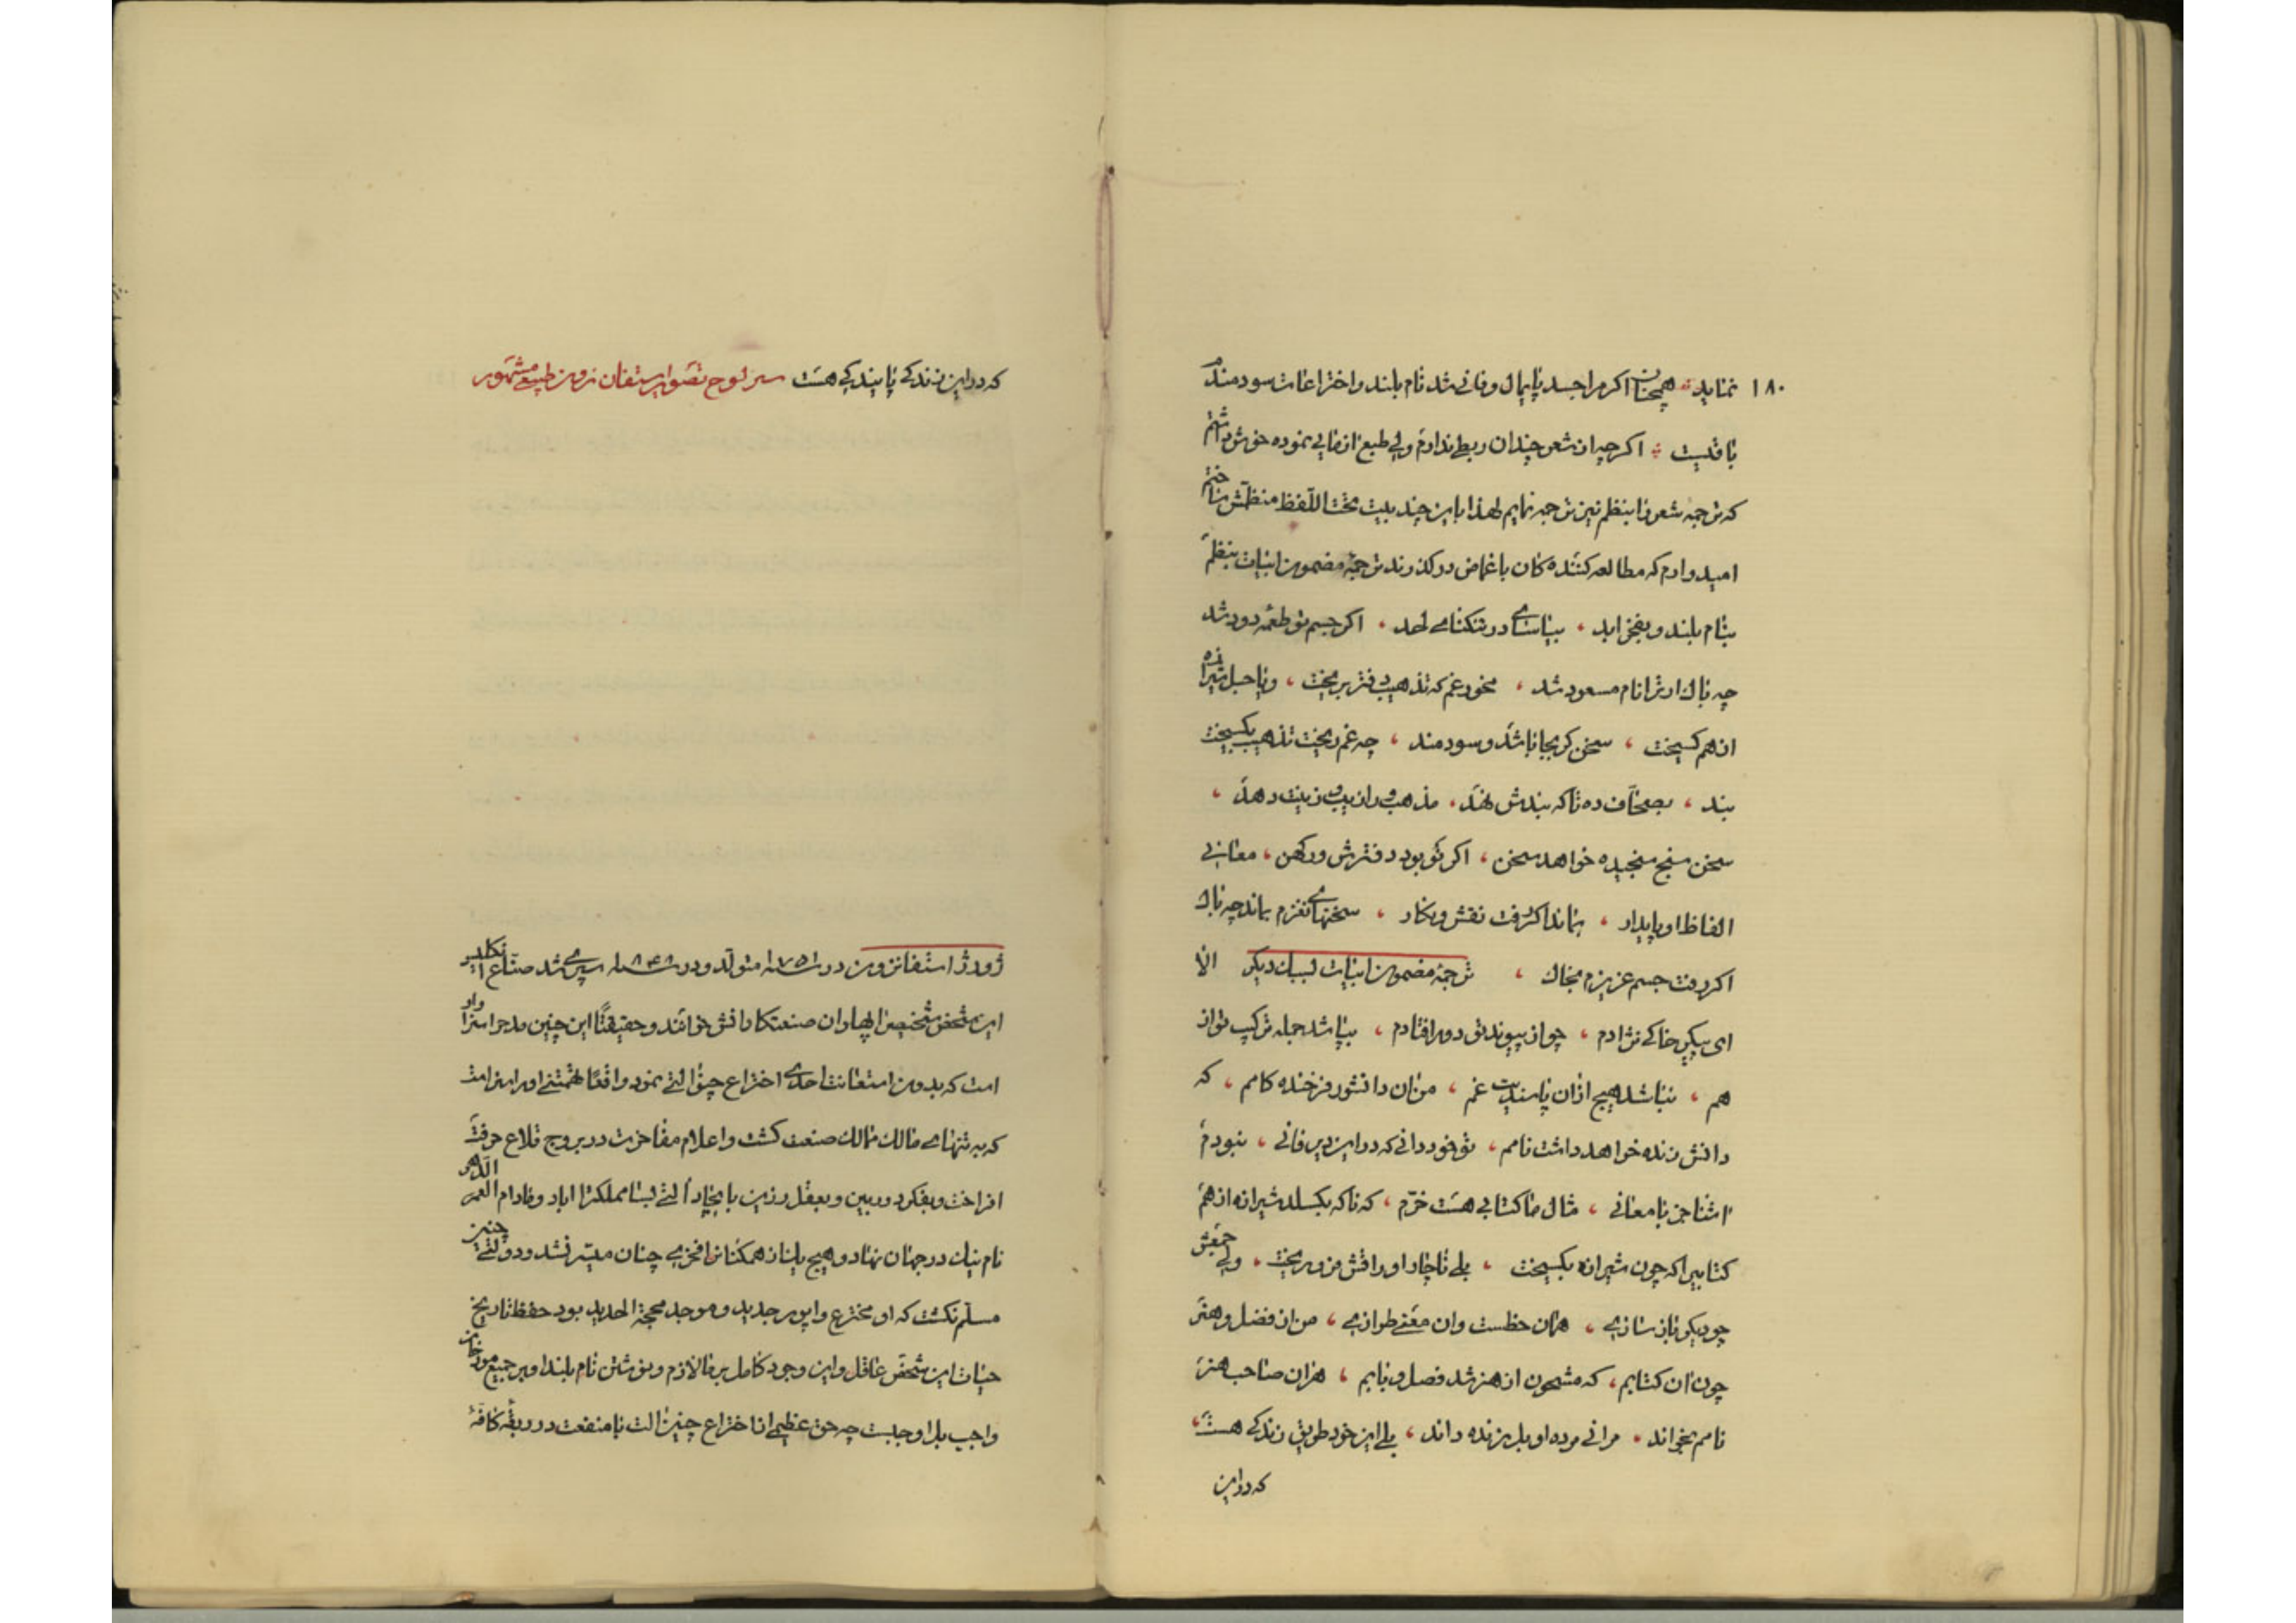 ۱۸۰ نماید همچنان اگر مرا جسد پایمال و فانی شد نام بلند و اختراعات سودمندم
باقیست اگرچه از شعر چندان ربطی ندارم ولی طبع ازمایی نموده خوش داشتم
که ترجمه شعر را بنظم نیز ترجمه نمایم لهذا باین چند بیت تحت اللفظ منظمش ساختم
امیدوارم که مطالعه کننده کان باغماض درکذرند ترجمهٔ مضمون ابیات بنظم
بنام بلند و بفخر ابد بیاسای در تنکنای لحد اکر جسم تو طعمه دود شد
چه باک ار ترا نام مسعود شد مخور غم که تذهیب دفتر بریخت و یا حبل شیرازه
از هم کسیخت سخن کر بجا باشد و سودمند چه غم ریخت تذهیب بکسیخت
بند بصحاف ده تا که بندش نهد مذهب و را زیب و زینت دهد
سخن سنج سنجیده خواهد سخن اکر نو بود دفترش ور کهن معانی
الفاظ او پایدار بماند اکر رفت نقش و نکار سخنهای نغزم بماند چه باک
اکر رفت جسم عزیزم بخاک ترجمهٔ مضمون ابیات لبیان دیکر الا
ای پیکر خاکی نژادم چو از پیوند تو دور افتادم بپاشد جمله ترکیب تو از
هم نباشد هیچ از ان پابندیت غم من ان دانشور فرخنده کامم که
دانش زنده خواهد داشت نامم تو خود دانی که در این دیر فانی نبودم
اشنا جز با معانی مثال ما کتابی هست خرم که ناکه بکسلد شیرازه از هم
کتابیرا که چون شیرازه بکسیخت بلی ناچار اوراقش فرو ریخت ولی جمعش
چو دیکر باز سازی همان حظست وان معنی طرازی من از فضل و هنر
چون ان کتابم که مشحون از هنر شد فصل و بابم هر ان صاحب هنر
نامم بخواند مرا نی مرده او بل زنده داند بلی این خود طریق زندکی هست
که در این
که در این زندکی پابندکی هست سر لوح تصویر استفان زون طبیعی مشهور
ژورژ استفانزون در سنه ۱۷۵۱ متولد و در سنه ۱۸۴۸ سپری شد صناع انکلیز
این شخص شخیص را پهلوان صنعتکار دانش خوانند و حقیقتاً این چنین مدح او را سزاوار
است که بدون استعانت احدی اختراع چنین التی نمود واقعاً همتی او را سزاست
که به تنهای مالک ممالک صنعت کشت و اعلام مفاخرت در بروج قلاع حرفت
افراخت و بفکر دوربین و بعقل رزین بایجاد التی لبنا مملکترا اباد و مادام العمر الدهر
نام نیک در جهان نهاد و هیچ یک از همکنانرا فخری چنان میسر نشد و دولتی چنین
مسلم نکشت که او مخترع واپور جدید و موجد محجة الحدید بود حفظ تاریخ
حیات این شخص عاقل و این وجود کامل بر ما لازم و نوشتن نام بلند او بر جمیع مورخان
واجب بل اوجبست چه حق عظیمی از اختراع چنین الت بامنفعت در ربقهٔ کافهٔ